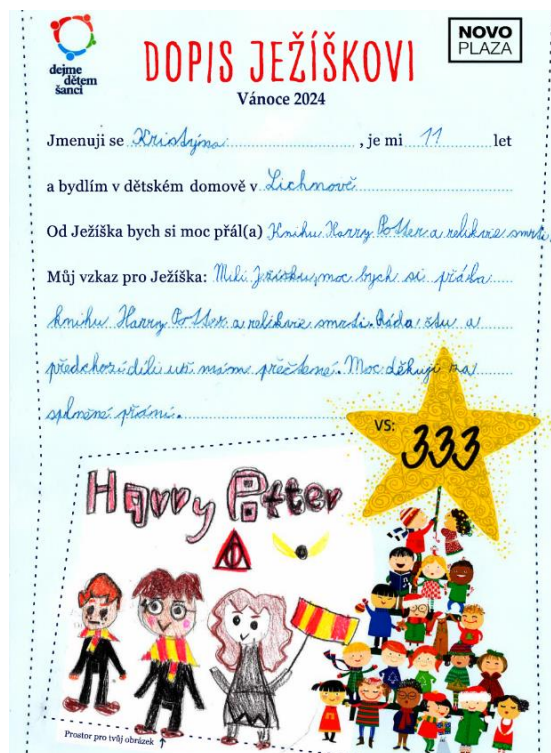 dejme
dětem
šanci
DOPIS JEŽÍŠKOVI
NOVO
PLAZA
Vánoce 2024
Jmenuji se Kristýna, je mi 11 let
a bydlím v dětském domově v Lichnově
Od Ježíška bych si moc přál(a) Knihu Harry Potter a relikvie smrti.
Můj vzkaz pro Ježíška: Milí Ježísku, moc bych si přála
knihu Harry Potter a relikvie smrti. Ráda čtu a
předchozí díli už mám přečtené. Moc děkuji za
splnéné přání.
VS: 333
Harry Potter
Prostor pro tvůj obrázek ↑